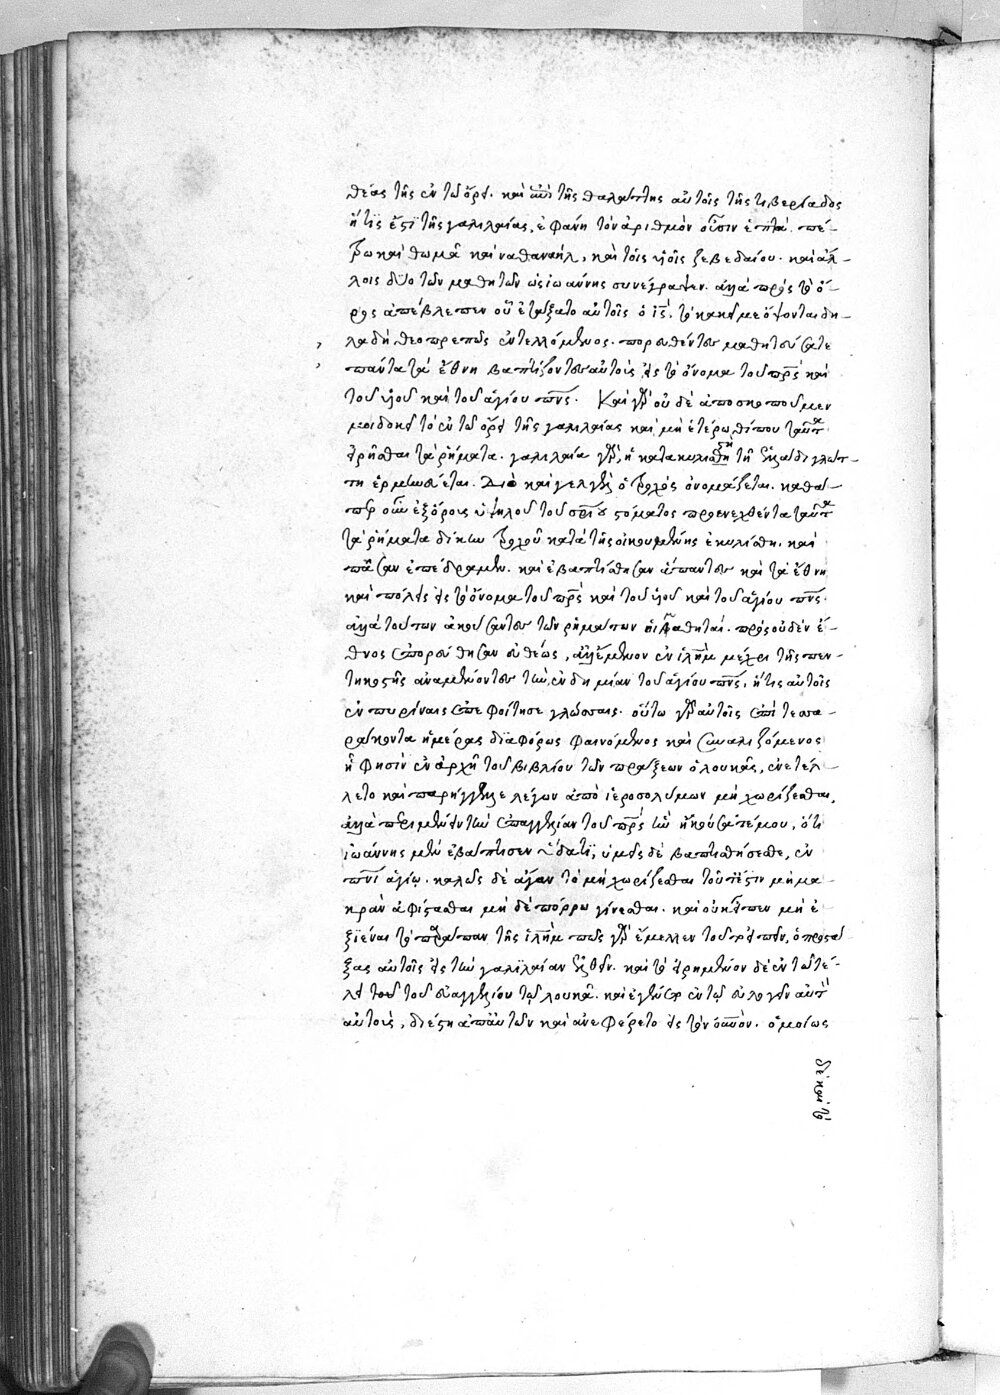 θέας τῆς ἐν τῷ ὄρει. καὶ ἐπὶ τῆς θαλάττης αὐτοῖς τῆς τιβεριάδος
ἥτις ἐστὶ τῆς γαλιλαίας, ἐφάνη τὸν ἀριθμὸν οὖσιν ἑπτά. πέ-
τρῳ καὶ θωμᾶ καὶ ναθαναήλ, καὶ τοῖς υἱοῖς ζεβεδαίου. καὶ ἄλ-
λοις δύο τῶν μαθητῶν ὡς ἰωάννης συνέγραψεν. ἀλλὰ πρὸς τὸ ὄ-
ρος ἀπέβλεπεν οὗ ἐτάξατο αὐτοῖς ὁ ι̅ς̅. τὸ κἀκεῖ με ὄψονται δη-
λαδὴ θεοπρεπῶς ἐντελλόμενος. πορευθέντες μαθητεύσατε
πάντα τὰ ἔθνη βαπτίζοντες αὐτοὺς εἰς τὸ ὄνομα τοῦ π̅ρ̅ς̅ καὶ
τοῦ υἱοῦ καὶ τοῦ ἁγίου π̅ν̅ς̅. Καὶ γὰρ οὐδὲ ἀπὸ σκοποῦ μεν
μοι δοκεῖ τὸ ἐν τῷ ὄρει τῆς γαλιλαίας καὶ μὴ ἑτέρωθί που ταῦτα
εἰρῆσθαι τὰ ῥήματα. γαλιλαία γὰρ, ἡ κατακυλιστὴ τῇ ἑλλάδι γλώτ-
τῃ ἑρμηνεύεται. Διὸ καὶ γελγὲλ ὁ τροχὸς ὀνομάζεται. καθά-
περ οὖν ἐξ ὄρους ὑψηλοῦ τοῦ σ̅ρ̅ι̅ο̅υ̅ στόματος προενεχθέντα ταῦτα
τὰ ῥήματα δίκην τροχοῦ κατὰ τῆς οἰκουμένης ἐκυλίσθη. καὶ
πᾶσαν ἐπέδραμεν. καὶ ἐβαπτίσθησαν ἅπαντες καὶ τὰ ἔθνη
καὶ πόλεις εἰς τὸ ὄνομα τοῦ π̅ρ̅ς̅ καὶ τοῦ υἱοῦ καὶ τοῦ ἁγίου π̅ν̅ς̅.
ἀλλὰ τούτων ἀκούσαντες τῶν ῥημάτων οἱ μαθηταί. πρὸς οὐδὲν ἔ-
θνος ἐπορεύθησαν εὐθέως, ἀλλ' ἔμενον ἐν ἱλ̅η̅μ̅ μέχρι τῆς πεν-
τηκοστῆς ἀναμένοντες τὴν ἐνδημίαν τοῦ ἁγίου π̅ν̅ς̅, ἥτις αὐτοῖς
ἐν πυρίναις ἐπεφοίτησε γλώσσαις. οὕτω γὰρ αὐτοῖς ἐπὶ τεσσα-
ράκοντα ἡμέρας διαφόρως φαινόμενος καὶ συναλιζόμενος
ᾗ φησὶν ἐν ἀρχῇ τοῦ βιβλίου τῶν πράξεων ὁ λουκᾶς, ἐνετέλ-
λετο καὶ παρήγγειλε λέγων ἀπὸ ἱεροσολύμων μὴ χωρίζεσθαι,
ἀλλὰ περιμένειν τὴν ἐπαγγελίαν τοῦ π̅ρ̅ς̅ ἣν ἠκούσατέ μου, ὅτι
ἰωάννης μὲν ἐβάπτισεν ὕδατι, ὑμεῖς δὲ βαπτισθήσεσθε, ἐν
π̅ν̅ι̅ ἁγίῳ. καλῶς δὲ ἄγαν τὸ μὴ χωρίζεσθαι τουτέστιν μὴ μα-
κρὰν ἀφίστασθαι μὴ δὲ πόρρω γίνεσθαι. καὶ οὐκ εἶπεν μὴ ἐ-
ξιέναι τὸ παράπαν τῆς ἱλ̅η̅μ̅ πῶς γὰρ ἔμελλεν τοῦτ' εἰπεῖν, ὁ προστά-
ξας αὐτοῖς εἰς τὴν γαλιλαίαν ἐλθεῖν. καὶ τὸ εἰρημένον δὲ ἐν τῷ τέ-
λει τοῦ τοῦ εὐαγγελίου τοῦ λουκᾶ. καὶ ἐγένετο ἐν τῷ εὐλογεῖν αὐτὸν
αὐτοὺς, διέστη ἀπ' αὐτῶν καὶ ἀνεφέρετο εἰς τὸν ο̅υ̅ν̅ο̅ν̅. ὁμοίως
δὲ καὶ τὸ